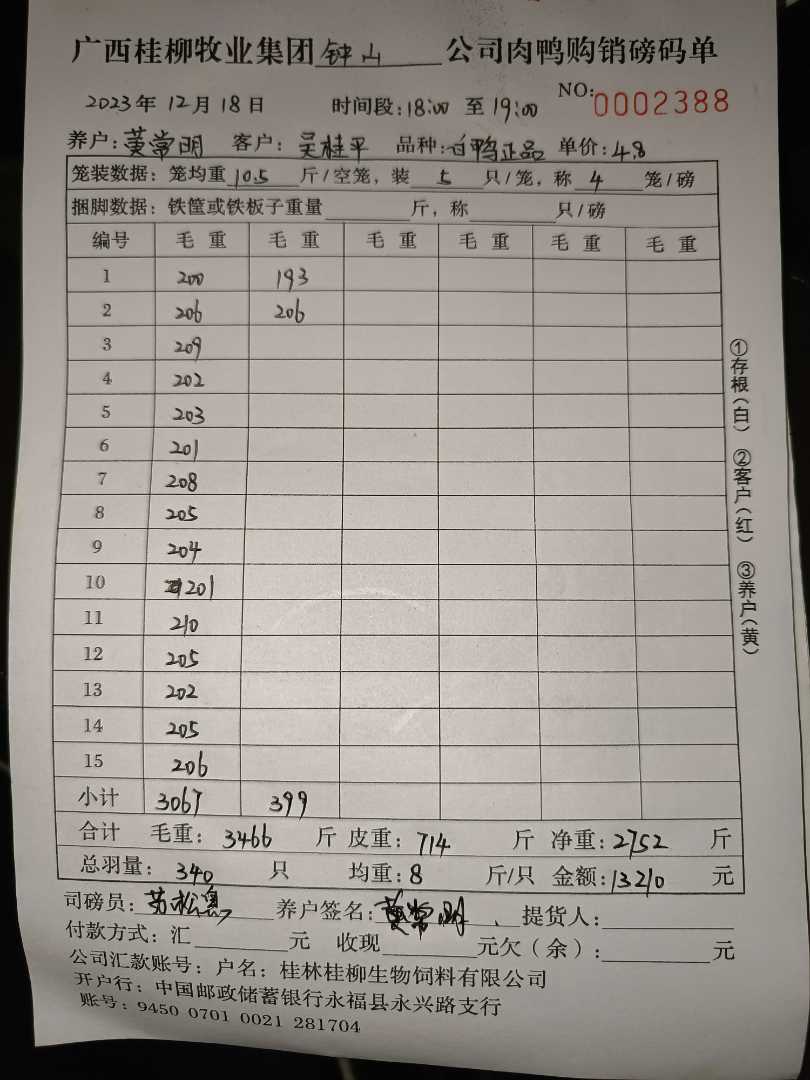 广西桂柳牧业集团钟山公司肉鸭购销磅码单
2023年12月18日 时间段:18:00至19:00 NO:0002388
养户:黄常明 客户:吴桂平 品种:白鸭正品 单价:4.8
笼装数据:笼均重10.5斤/空笼,装5只/笼,称4笼/磅
捆脚数据:铁筐或铁板子重量 斤,称 只/磅
编号 毛重 毛重 毛重 毛重 毛重 毛重
1 200 193
2 206 206
3 209
4 202
5 203
6 201
7 208
8 205
9 204
10 201
11 210
12 205
13 202
14 205
15 206
小计 3067 399
合计 毛重:3466斤 皮重:714斤 净重:2752斤
总羽量:340只 均重:8斤/只 金额:13210元
司磅员:苏松 养户签名:黄常明 提货人:
付款方式:汇 元 收现 元欠(余): 元
公司汇款账号:户名:桂林桂柳生物饲料有限公司
开户行:中国邮政储蓄银行永福县永兴路支行
账号:9450 0701 0021 281704
①存根(白) ②客户(红) ③养户(黄)